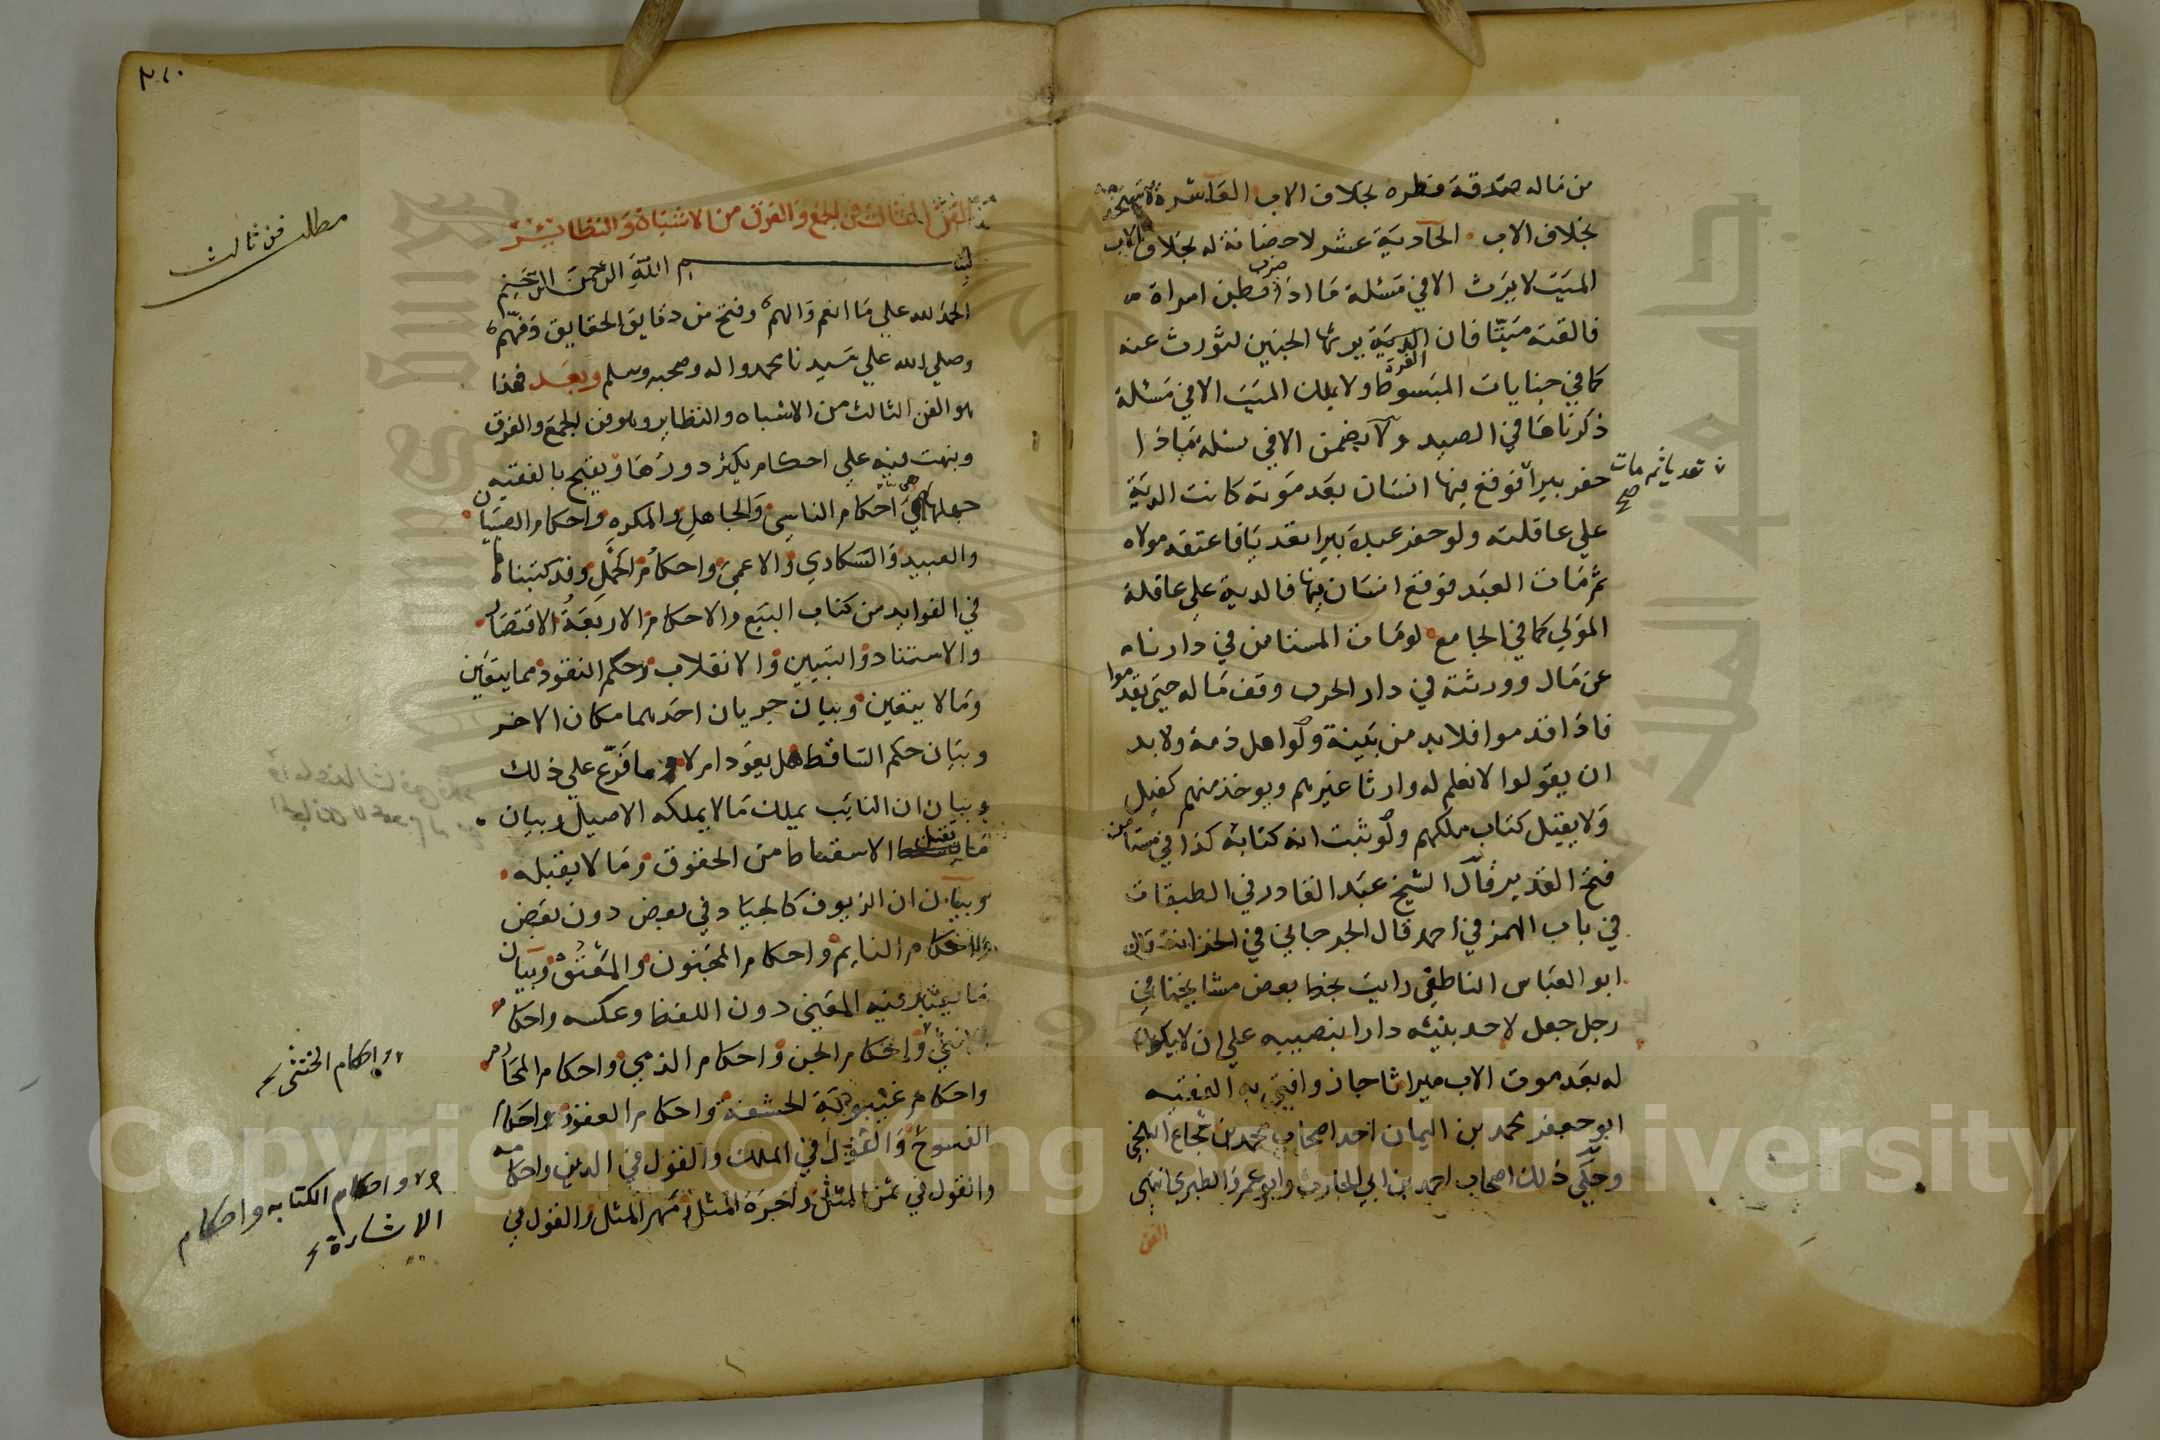 من ماله صدقة فطره بخلاف الاب العاشرة لا تستحقه
بخلاف الاب الحادية عشر لا حضانة له بخلاف الاب
الميت لا يرث الا في مسئلة ما اذا ضرب بطن امراة
فالقته ميتا فان الغرة يرثها الجنين لتورث عنه
كما في جنايات المبسوط ولا يملك الميت الا في مسئلة
ذكرناها في الصيد ولا يضمن الا في مسئلة ما اذا
حفر بيرا فوقع فيها انسان بعد موته كانت الدية
تعديا ثم مات
صح
علي عاقلته ولو حفر عبد بيرا تعديا فاعتقه مولاه
ثم مات العبد فوقع انسان فيها فالدية علي عاقلة
المولي كما في الجامع لومات المستامن في دارنا
عن مال وورثته في دار الحرب وقف ماله حتي يقدموا
فاذا قدموا فلابد من بينة ولو اهل ذمة ولابد
ان يقولوا لا نعلم له وارثا غيرهم ويوخذ منهم كفيل
ولا يقبل كتاب ملكهم ولو ثبت انه كتابه كذا في مستامن
فتح القدير قال الشيخ عبد القادر في الطبقات
في باب الهمز في احمد قال الجرجاني في الخزانة قال
ابو العباس الناطفي رايت بخط بعض مشايخنا في
رجل جعل لاحد بنيه دارا بنصيبه علي ان لا يكون
له بعد موت الاب ميراثا جاز وافتي به الفقيه
ابو جعفر محمد بن اليمان احد اصحاب محمد بن شجاع البلخي
وحكي ذلك اصحاب احمد بن ابي الحارث وابو عمرو الطبري انتهي
الفن
مطلب فن ثالث
الفن الثالث في الجمع والفرق من الاشباه والنظاير
بسم الله الرحمن الرحيم
الحمد لله علي ما انعم والهم وفتح من دقايق الحقايق وفهم
وصلي الله علي سيدنا محمد واله وصحبه وسلم وبعد فهذا
هو الفن الثالث من الاشباه والنظاير وهو فن الجمع والفرق
ونبهت فيه علي احكام يكثر دورها ويقبح بالفقيه
جهلها هي احكام الناسي والجاهل والمكره واحكام الصبيان
والعبيد والسكاري والاعمي واحكام الحمل وقد كتبناها
في الفوايد من كتاب البيع والاحكام الاربعة الاقتصار
والاستناد والتبيين والانقلاب وحكم النقود مما يتعين
وما لا يتعين وبيان جريان احدهما مكان الاخر
وبيان حكم الساقط هل يعود ام لا وما فرع علي ذلك
وبيان ان النائب يملك ما لا يملكه الاصيل وبيان
ما يقبل الاسقاط من الحقوق وما لا يقبله
وبيان ان الزيوف كالجياد في بعض دون بعض
واحكام النايم واحكام المجنون والمعتوه وبيان
ما يعتبر فيه المعني دون اللفظ وعكسه واحكام
واحكام الخنثي
الانثي واحكام الجن واحكام الذمي واحكام المحارم
واحكام غيبوبة الحشفة واحكام العقود واحكام
الفسوخ والقول في الملك والقول في الدين واحكامه
والقول في ثمن المثل واجرة المثل ومهر المثل والقول في
واحكام الكتابه واحكام
الاشارة
Copyright © King Saud University